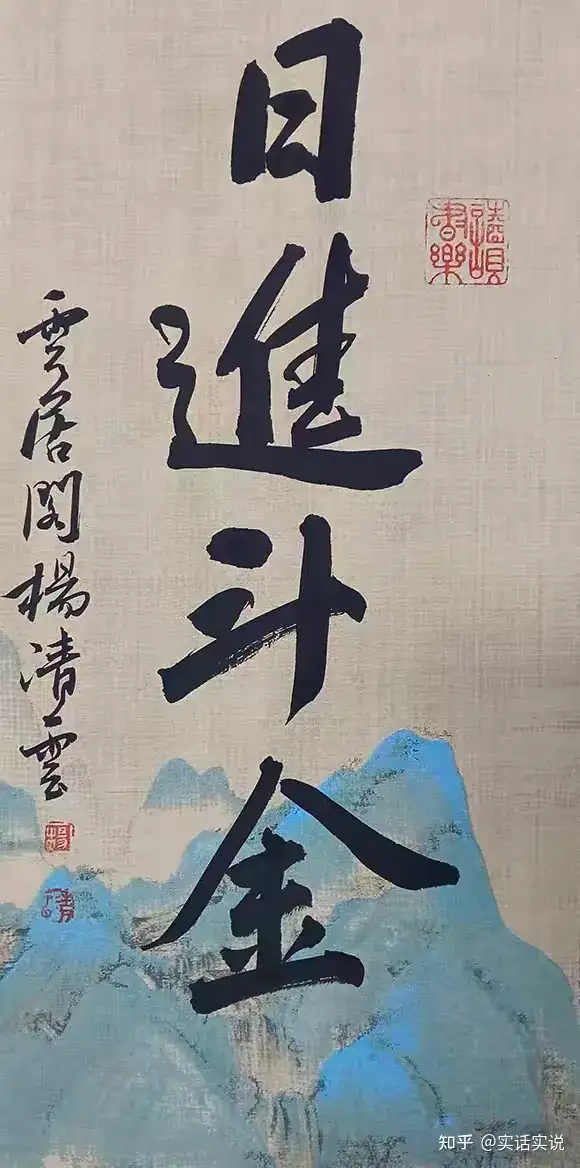 日進斗金
雲居閣楊清雲
知乎 @实话实说